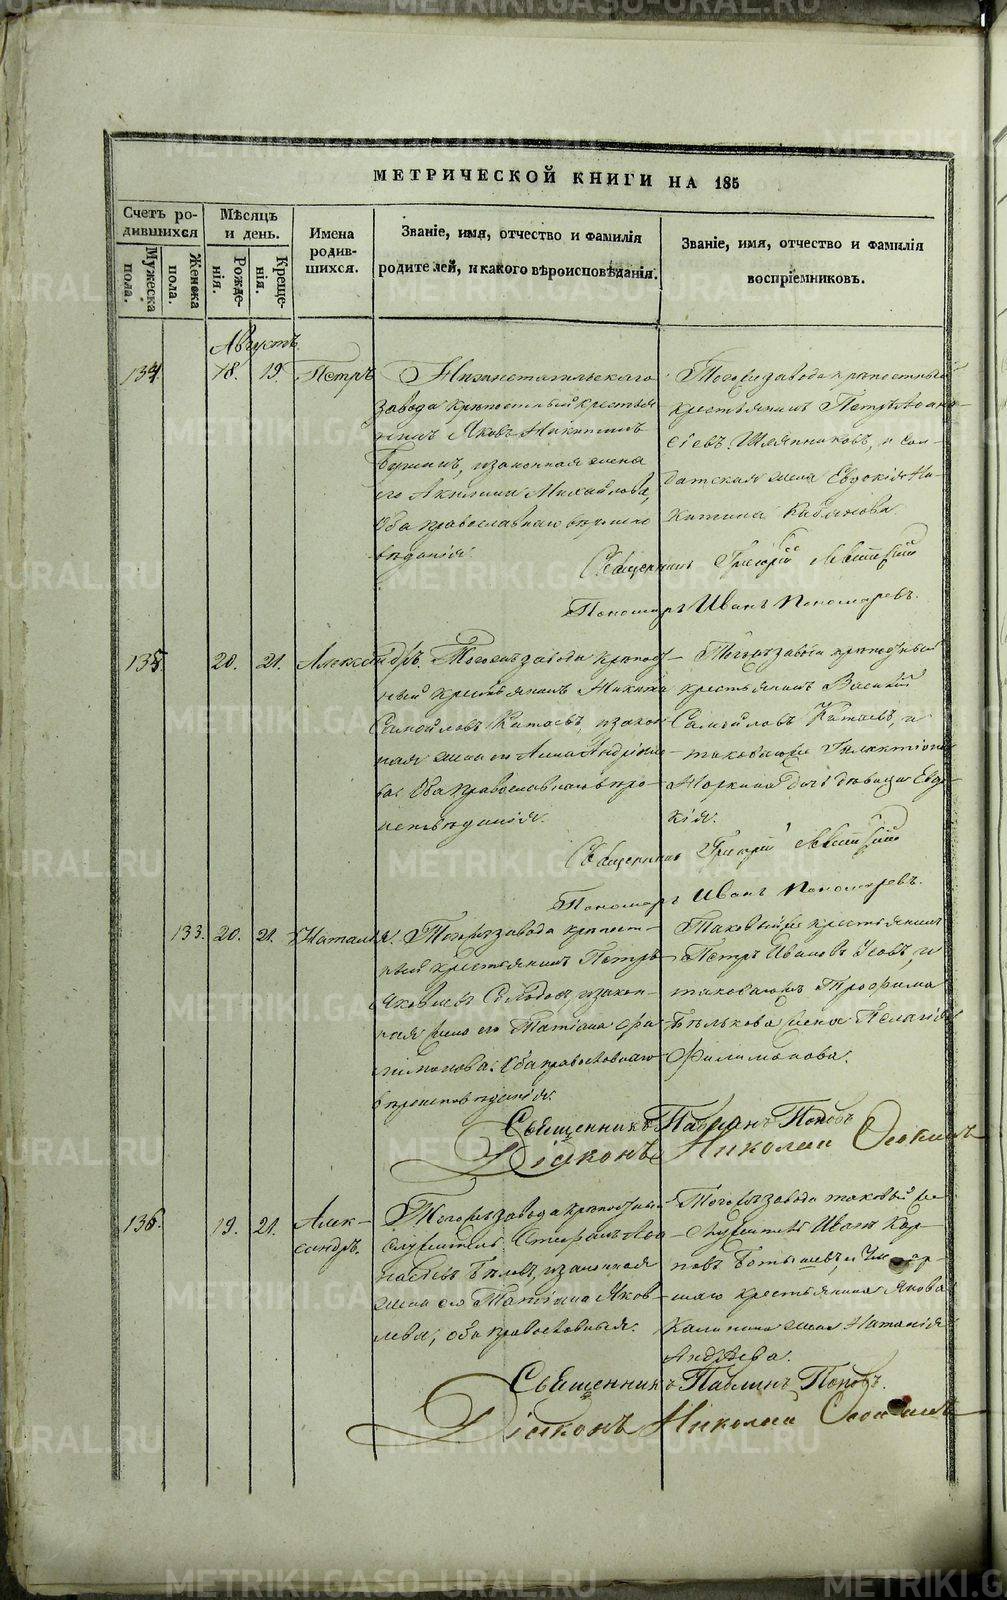 МЕТРИЧЕСКОЙ КНИГИ НА 185
Счетъ ро-
дившихся
Мужеска
пола.
Женска
пола.
Мѣсяцъ
и день.
Рожде-
нія.
Креще-
нія.
Имена
родив-
шихся.
Званіе, имя, отчество и фамилія
родителей, и какого вѣроисповѣданія.
Званіе, имя, отчество и фамилія
воспріемниковъ.
Августъ
134.
18.
19.
Петръ
Нижнетагильскаго
завода крѣпостный крестья
нинъ Яковъ Никитинъ
законная жена
его Акилина Михайлова,
оба православнаго вѣроиспо
вѣданія.
Тогоже завода крѣпостный
крестьянинъ Петръ Аѳана-
сіевъ Шляпниковъ, и сол-
датская жена Евдокія Ни-
китина Кабанова
Священникъ Григорій Левитскій
Пономарь Иванъ Пономаревъ.
135
20.
21.
Александръ.
Тогожъ завода крѣпост-
ный крестьянинъ Никита
Самойловъ Китаевъ, и закон
ная жена его Анна Андріяно
ва. Оба православнаго вѣро
исповѣданія.
Тогожъ завода крѣпостный
крестьянинъ Василій
Самойловъ Китаевъ, и
таковагоже Галактіона
дочь дѣвица Евдо-
кія.
Священникъ Григорій Левитскій
Пономарь Иванъ Пономаревъ.
133.
20.
21.
Наталія.
Тогожъ завода крѣпост-
ный крестьянинъ Петръ
Яковлевъ и закон-
ная жена его Татіана Фи
лимонова. Оба православнаго
вѣроисповѣданія.
Таковыйже крестьянинъ
Петръ Ивановъ Усовъ, и
таковагожъ Трофима
Бѣлькова жена Пелагія
Филимонова.
Священникъ Павлинъ Поповъ
Діаконъ Николай Осокинъ
136.
19.
21.
Алек-
сандръ.
Тогожъ завода крѣпостный
служитель Стефанъ Аѳа-
насьевъ Бѣловъ, и законная
жена его Татіана Яков-
лева, оба православныя.
Тогожъ завода таковый же
служитель Иванъ Кар-
повъ
крестьянина Якова
Калинина жена Наталія
Андрѣева.
Священникъ Павлинъ Поповъ.
Діаконъ Николай Осокинъ
METRIKI.GASO-URAL.RU